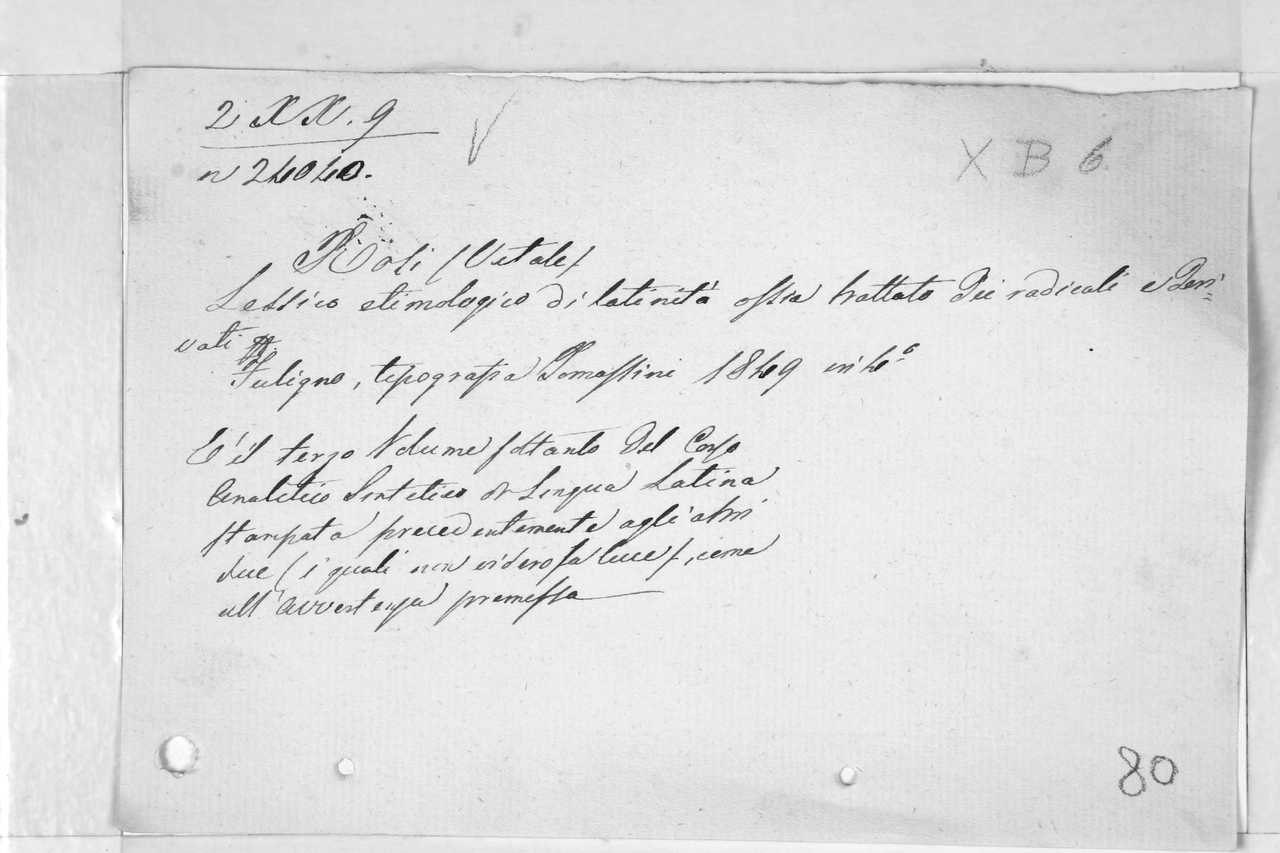 2 XX. 9
n 24040.
X B 6.
Rosi (Vitale)
Lessico etimologico di latinità ossia trattato dei radicali e deri=
vati
Fuligno, tipografia Tomassini 1849 in 4.o
E' il terzo Volume soltanto del Corso
Analitico Sintetico di Lingua Latina
stampata precedentemente agli altri
due (i quali non videro la luce), come
all'avvertenza premessa
80